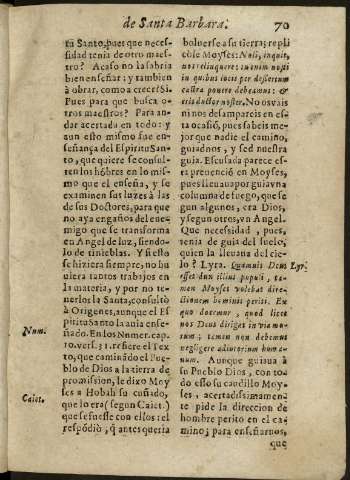 de Santa Barbara. 70
tu Santo, pues que neces-
sidad tenia de otro maes-
tro? Acaso no la sabria
bien enseñar: y tambien
à obrar, como a creer? Si.
Pues para que busca o-
tros maestros? Para an-
dar acertada en todo: y
aun esto mismo fue en-
señança del Espiritu San-
to, que quiere se consul-
ten los hõbres en lo mis-
mo que el enseña, y se
examinen sus luzes à las
de sus Doctores, para que
no aya engaños del ene-
migo que se transforma
en Angel de luz, siendo-
lo de tinieblas. Y si esto
se hiziera siempre, no hu
uiera tantos trabajos en
la materia, y por no te-
nerlos la Santa, consultò
à Origenes, aunque el Es
piritu Santo la auia ense-
ñado. En los Numer. cap.
10. vers. 31. refiere el Tex
to, que caminãdo el Pue-
blo de Dios a la tierra de
promission, le dixo Moy
ses a Hobab su cuñado,
que lo era (segun Caiet.)
que se fuesse con ellos: el
respõdiò, q̃ antes queria
Num.
Caiet.
boluerse a su tierra; repli
cole Moyses: Noli, inquit,
nos relinquere: tu enim nosti
in quibus locis per desertum
castra ponere debeamus: &
eris ductor noster. No os vais
ni nos desampareis en es-
ta ocasiõ, pues sabeis me-
jor que nadie el camino,
guiadnos, y sed nuestra
guia. Escusada parece es-
ta preuenciò en Moyses,
pues lleuaua por guia vna
columna de fuego, que se
gun algunos, era Dios,
y segun otros, vn Angel.
Que necessidad, pues,
tenia de guia del suelo,
quien la lleuaua del cie-
lo? Lyra. Quamuis Deus
esset dux illius populi, ta-
men Moyses volebat dire-
ctionem hominis periti. Ex
quo docemur, quod licet
nos Deus dirigat in via mo-
rum; tamen non debemus
negligere adiutorium huma-
num. Aunque guiaua à
su Pueblo Dios, con to-
do esso su caudillo Moy-
ses, acertadissimamen-
te pide la direccion de
hombre perito en el ca-
mino; para enseñarnos,
que
Lyr.